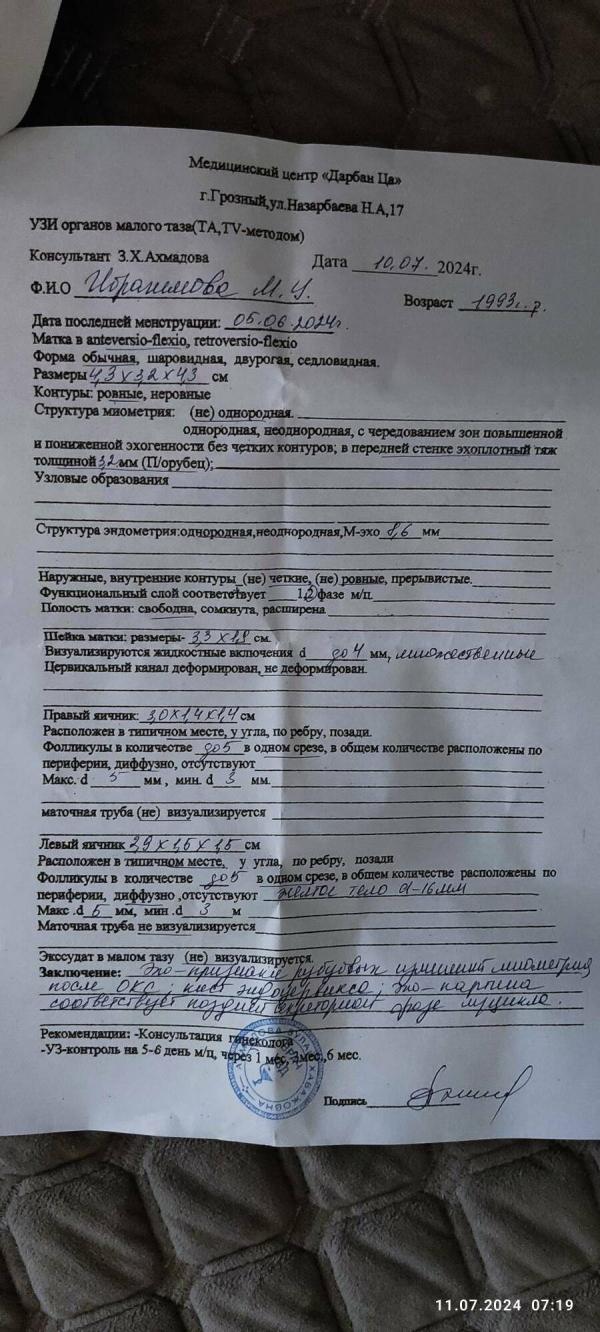 Медицинский центр «Дарбан Ца»
г.Грозный,ул.Назарбаева Н.А,17
УЗИ органов малого таза(ТА,TV-методом)
Консультант З.Х.Ахмадова Дата 10.07. 2024г.
Ф.И.О Ибрагимова М. У. Возраст 1993г.р.
Дата последней менструации: 05.06.2024г.
Матка в anteversio-flexio, retroversio-flexio
Форма обычная, шаровидная, двурогая, седловидная.
Размеры 4,3 х 3,2 х 4,3 см
Контуры: ровные, неровные
Структура миометрия: (не) однородная.
однородная, неоднородная, с чередованием зон повышенной
и пониженной эхогенности без четких контуров; в передней стенке эхоплотный тяж
толщиной 3,2 мм (П/орубец);
Узловые образования
Структура эндометрия:однородная,неоднородная,М-эхо 8,6 мм
Наружные, внутренние контуры (не) четкие, (не) ровные, прерывистые.
Функциональный слой соответствует 1,2 фазе м/ц
Полость матки: свободна, сомкнута, расширена
Шейка матки: размеры- 3,3 х 1,9 см.
Визуализируются жидкостные включения d до 4 мм, множественные
Цервикальный канал деформирован, не деформирован.
Правый яичник: 3,0х1,4х1,4 см
Расположен в типичном месте, у угла, по ребру, позади.
Фолликулы в количестве до 5 в одном срезе, в общем количестве расположены по
периферии, диффузно, отсутствуют
Макс. d 5 мм , мин. d 3 мм.
маточная труба (не) визуализируется
Левый яичник 2,9 х 1,6 х 1,5 см
Расположен в типичном месте, у угла, по ребру, позади
Фолликулы в количестве до 5 в одном срезе, в общем количестве расположены по
периферии, диффузно ,отсутствуют желтое тело d-16мм
Макс .d 5 мм, мин .d 3 м
Маточная труба не визуализируется
Экссудат в малом тазу (не) визуализируется.
Заключение: Эхо-признаки рубцовых изменений миометрия
после ОКС; кист эндоцервикса; эхо-картина
соответствует поздней секреторной фазе м/цикла.
Рекомендации: -Консультация гинеколога
-УЗ-контроль на 5-6 день м/ц, через 1 мес, 3мес.,6 мес.
Подпись
11.07.2024 07:19